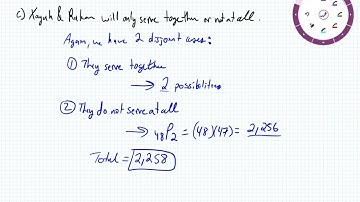 c) Xayah & Rakan will only serve together or not at all.
Again, we have 2 disjoint cases:
① They serve together
→ 2 possibilities
② They do not serve at all
→ ₄₈P₂ = (48)(47) = 2,256
Total = 2,258